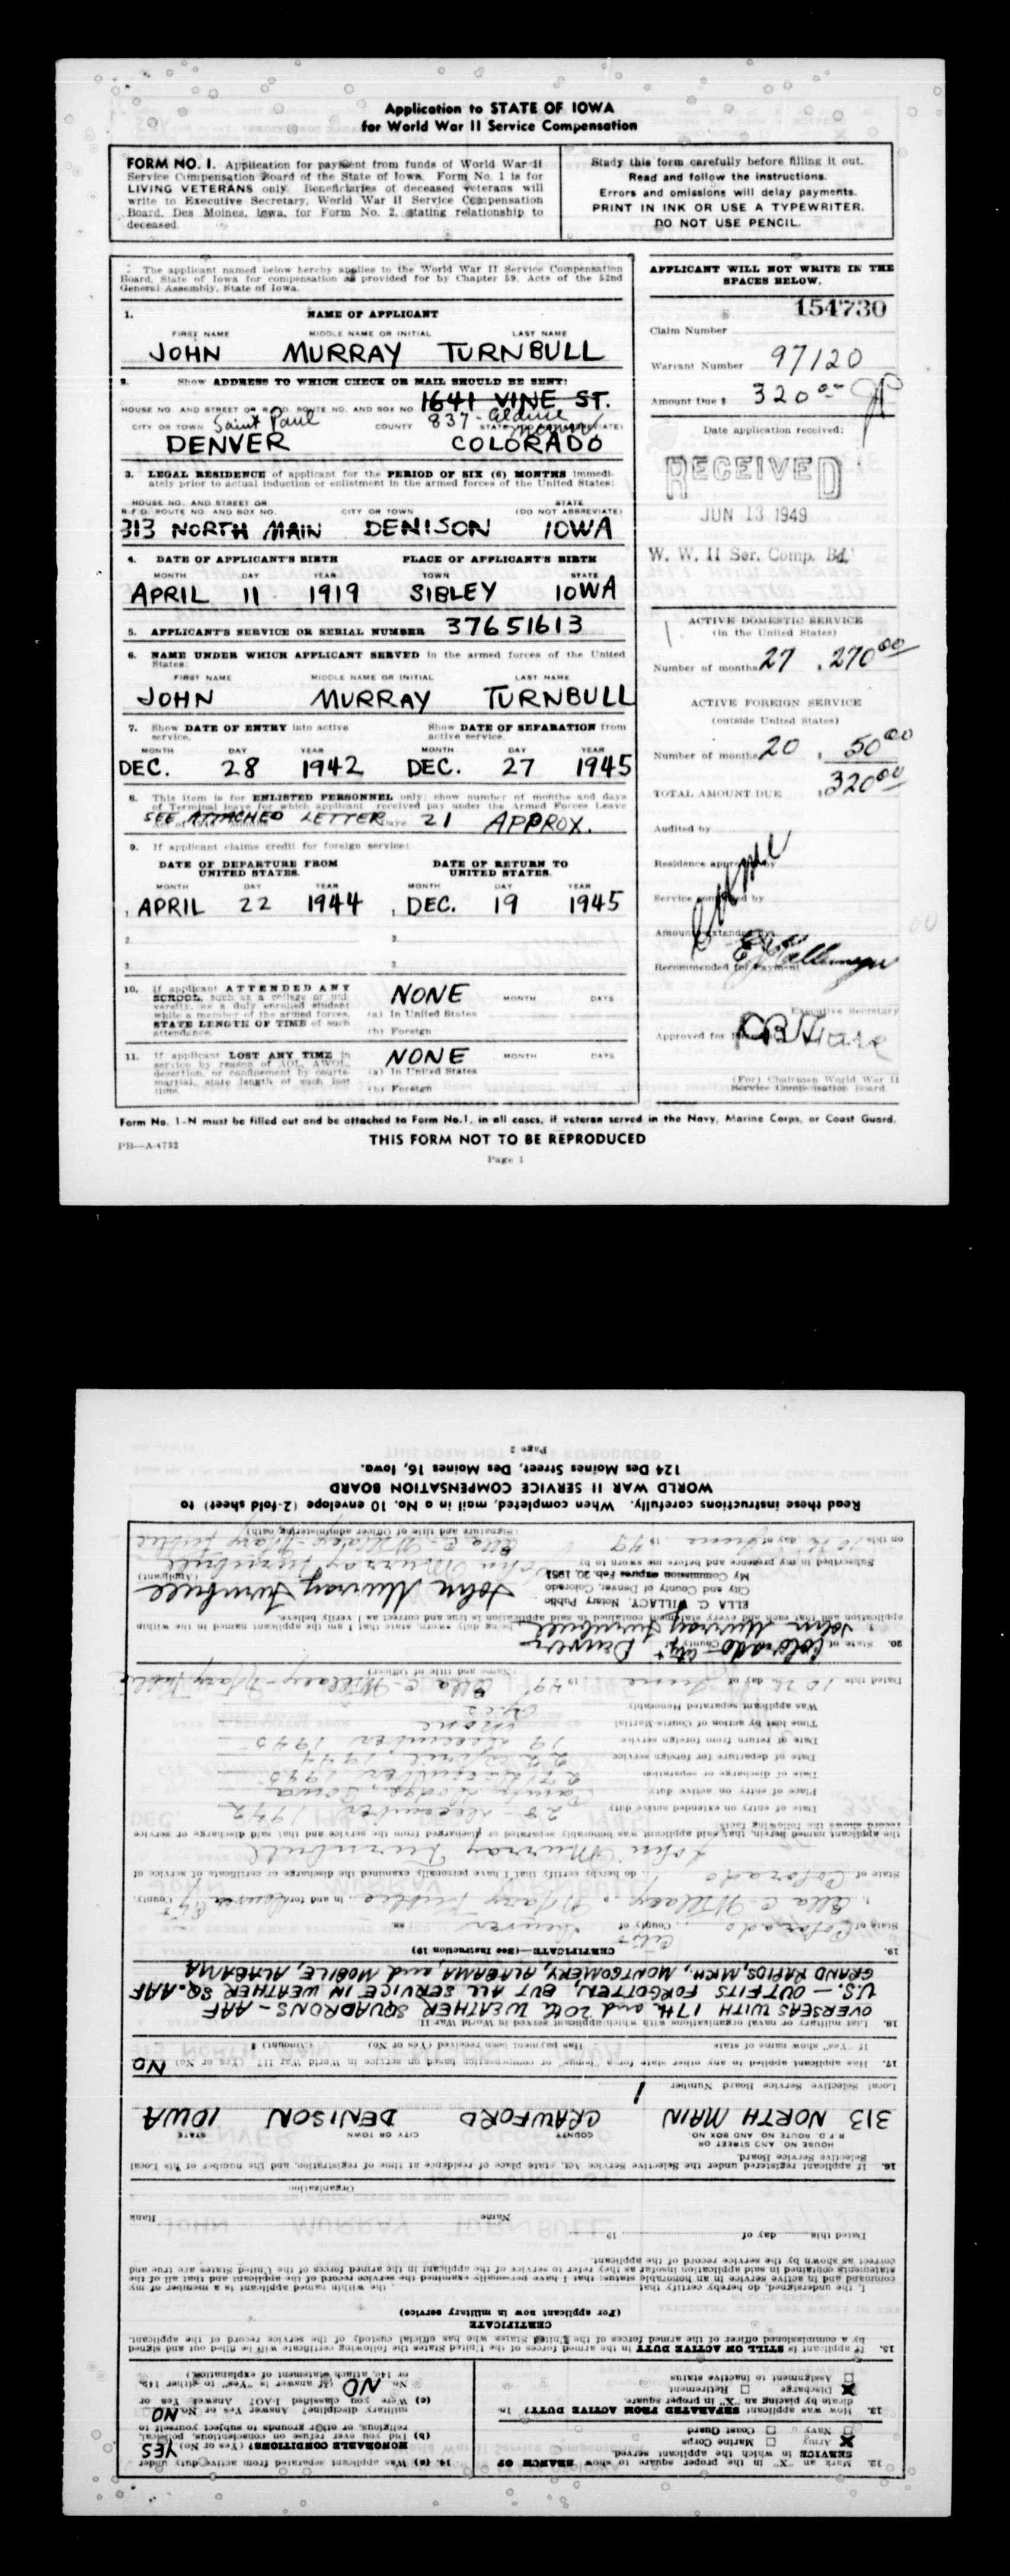 Application to STATE OF IOWA
for World War II Service Compensation
FORM NO. 1. Application for payment from funds of World War II
Service Compensation Board of the State of Iowa. Form No. 1 is for
LIVING VETERANS only. Beneficiaries of deceased veterans will
write to Executive Secretary, World War II Service Compensation
Board, Des Moines, Iowa, for Form No. 2, stating relationship to
deceased.
Study this form carefully before filling it out.
Read and follow the instructions.
Errors and omissions will delay payments.
PRINT IN INK OR USE A TYPEWRITER.
DO NOT USE PENCIL.
The applicant named below hereby applies to the World War II Service Compensation
Board, State of Iowa for compensation as provided for by Chapter 59, Acts of the 52nd
General Assembly, State of Iowa.
1. NAME OF APPLICANT
FIRST NAME MIDDLE NAME OR INITIAL LAST NAME
JOHN MURRAY TURNBULL
2. Show ADDRESS TO WHICH CHECK OR MAIL SHOULD BE SENT:
1641 VINE ST.
HOUSE NO. AND STREET OR R.F.D. ROUTE NO. AND BOX NO. 837 - Aldine
CITY OR TOWN Saint Paul COUNTY STATE
DENVER COLORADO
3. LEGAL RESIDENCE of applicant for the PERIOD OF SIX (6) MONTHS immedi-
ately prior to actual induction or enlistment in the armed forces of the United States:
HOUSE NO. AND STREET OR STATE
R.F.D. ROUTE NO. AND BOX NO. CITY OR TOWN (DO NOT ABBREVIATE)
313 NORTH MAIN DENISON IOWA
4. DATE OF APPLICANT'S BIRTH PLACE OF APPLICANT'S BIRTH
MONTH DAY YEAR TOWN STATE
APRIL 11 1919 SIBLEY IOWA
5. APPLICANT'S SERVICE OR SERIAL NUMBER 37651613
6. NAME UNDER WHICH APPLICANT SERVED in the armed forces of the United
States:
FIRST NAME MIDDLE NAME OR INITIAL LAST NAME
JOHN MURRAY TURNBULL
7. Show DATE OF ENTRY into active service. Show DATE OF SEPARATION from active service.
MONTH DAY YEAR MONTH DAY YEAR
DEC. 28 1942 DEC. 27 1945
8. This item is for ENLISTED PERSONNEL only; show number of months and days
of Terminal leave for which applicant received pay under the Armed Forces Leave
SEE ATTACHED LETTER Days 21 APPROX.
9. If applicant claims credit for foreign service:
DATE OF DEPARTURE FROM UNITED STATES. DATE OF RETURN TO UNITED STATES.
MONTH DAY YEAR MONTH DAY YEAR
1. APRIL 22 1944 1. DEC. 19 1945
2. 2.
3. 3.
10. If applicant ATTENDED ANY
SCHOOL, such as a college or uni-
versity, as a duly enrolled student
while a member of the armed forces,
STATE LENGTH OF TIME of such
attendance.
NONE MONTH DAYS
(a) In United States
(b) Foreign
11. If applicant LOST ANY TIME in
service by reason of AOL, AWOL,
desertion, or confinement by courts-
martial, state length of such lost
time.
NONE MONTH DAYS
(a) In United States
(b) Foreign
APPLICANT WILL NOT WRITE IN THE
SPACES BELOW.
154730
Claim Number
Warrant Number 97120
Amount Due $ 320 00
Date application received:
RECEIVED
JUN 13 1949
W. W. II Ser. Comp. Bd.
ACTIVE DOMESTIC SERVICE
(in the United States)
Number of months 27 $ 270 00
ACTIVE FOREIGN SERVICE
(outside United States)
Number of months 20 $ 50 00
TOTAL AMOUNT DUE $ 320 00
Audited by
Residence approved by
Service computed by
Amount extended by
Recommended for payment
Executive Secretary
Approved for
(For) Chairman World War II
Service Compensation Board
Form No. 1-N must be filled out and be attached to Form No.1, in all cases, if veteran served in the Navy, Marine Corps, or Coast Guard.
PB—A-4732
THIS FORM NOT TO BE REPRODUCED
Page 1
12. Mark an "X" in the proper square to show BRANCH OF
SERVICE in which the applicant served.
X Army Marine Corps
Navy Coast Guard
13. How was applicant SEPARATED FROM ACTIVE DUTY? In-
dicate by placing an "X" in proper square.
X Discharge Retirement
Assignment to inactive status
14. (a) Was applicant separated from active duty under
HONORABLE CONDITIONS? (Yes or No) YES
(b) Did you ever refuse on conscientious, political,
religious, or other grounds to subject yourself to
military discipline? Answer Yes or No NO
(c) Were you classified 1-AO? Answer Yes or
No NO (If answer is "yes" to either 14b,
or 14c, attach statement of explanation.)
15. If applicant is STILL ON ACTIVE DUTY in the armed forces of the United States the following certificate will be filled out and signed
by a commissioned officer of the armed forces of the United States who has official custody of the service record of the applicant.
CERTIFICATE
(For applicant now in military service)
I, the undersigned, do hereby certify that the within named applicant is a member of my
command and in active service in an honorable status; that I have personally examined the service record of the applicant and that all of the
statements contained in said application insofar as they refer to service of the applicant in the armed forces of the United States are true and
correct as shown by the service record of the applicant.
Dated this day of 19
Name Rank
Organization
16. If applicant registered under the Selective Service Act, state place of residence at time of registration, and the number of his Local
Selective Service Board.
HOUSE NO. AND STREET OR
R.F.D. ROUTE NO. AND BOX NO. COUNTY CITY OR TOWN STATE
313 NORTH MAIN CRAWFORD DENISON IOWA
Local Selective Service Board Number 1
17. Has applicant applied to any other state for a "bonus" or compensation based on service in World War II? (Yes or No) NO
If "Yes" show name of state Has payment been received (Yes or No) (Amount) $
18. List military or naval organizations with which applicant served in World War II.
OVERSEAS WITH 17th and 20th WEATHER SQUADRONS - AAF
U.S. - OUTFITS FORGOTTEN, BUT ALL SERVICE IN WEATHER SQ. AAF
GRAND RAPIDS, MICH., MONTGOMERY, ALABAMA and MOBILE, ALABAMA
19. CERTIFICATE—(See Instruction 19)
State of Colorado City & County of Denver ss.
I, Ella C. Willacy, a Notary Public, in and for County,
State of Colorado, do hereby certify that I have personally examined the discharge or certificate of service of
John Murray Turnbull
the applicant named herein, that said applicant was honorably separated or discharged from the service and that said discharge or service
record shows the following facts:
Date of entry on extended active duty 28 - December 1942
Place of entry on active duty Camp Dodge, Iowa
Date of discharge or separation 27 December 1945
Date of departure for foreign service 22 April 1944
Date of return from foreign service 19 December 1945
Time lost by action of Courts-Martial None
Was applicant separated Honorably Yes
Dated this 10th day of June 1949 Ella C. Willacy - Notary Public
(Name and title of Officer)
20. State of Colorado City & County of Denver
I, John Murray Turnbull being duly sworn, state that I am the applicant named in the within
application and that each and every statement contained in said application is true and correct as I verily believe.
ELLA C. WILLACY, Notary Public
City and County of Denver, Colorado
My Commission expires Feb. 20, 1951
John Murray Turnbull
(Applicant)
Subscribed in my presence and before me sworn to by John Murray Turnbull
on this 10th day of June 1949 Ella C. Willacy - Notary Public
(Signature and title of Officer administering oath)
Read these instructions carefully. When completed, mail in a No. 10 envelope (2-fold sheet) to
WORLD WAR II SERVICE COMPENSATION BOARD
124 Des Moines Street, Des Moines 16, Iowa.
Page 2